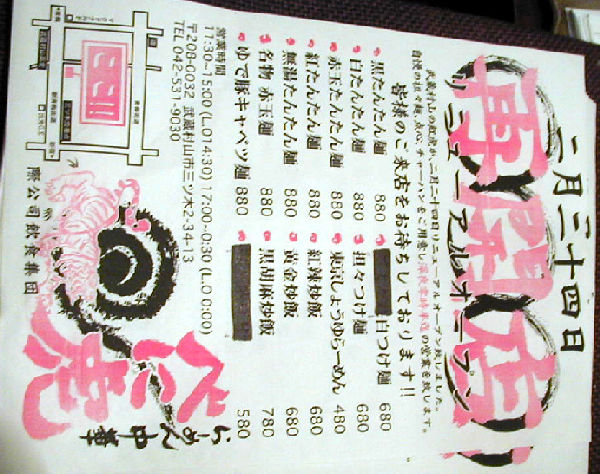 二月二十四日
再開店
リニューアルオープン
皆様のご来店をお待ちしております!!
黒たんたん麺 880
白たんたん麺 880
赤玉たんたん麺 880
紅たんたん麺 880
無湯たんたん麺 880
名物 赤玉麺 880
ゆで豚キャベツ麺 880
白つけ麺 680
担々つけ麺 680
東京しょうゆらーめん 480
紅辣炒飯 680
黄金炒飯 680
黒胡麻炒飯 780
580
営業時間
11:30~15:00 (L.O14:30) 17:00~0:30 (L.O 0:00)
〒208-0032 武蔵村山市三ツ木2-34-13
TEL 042-531-9030
際公司飲食集団
らーめん中華
紅虎